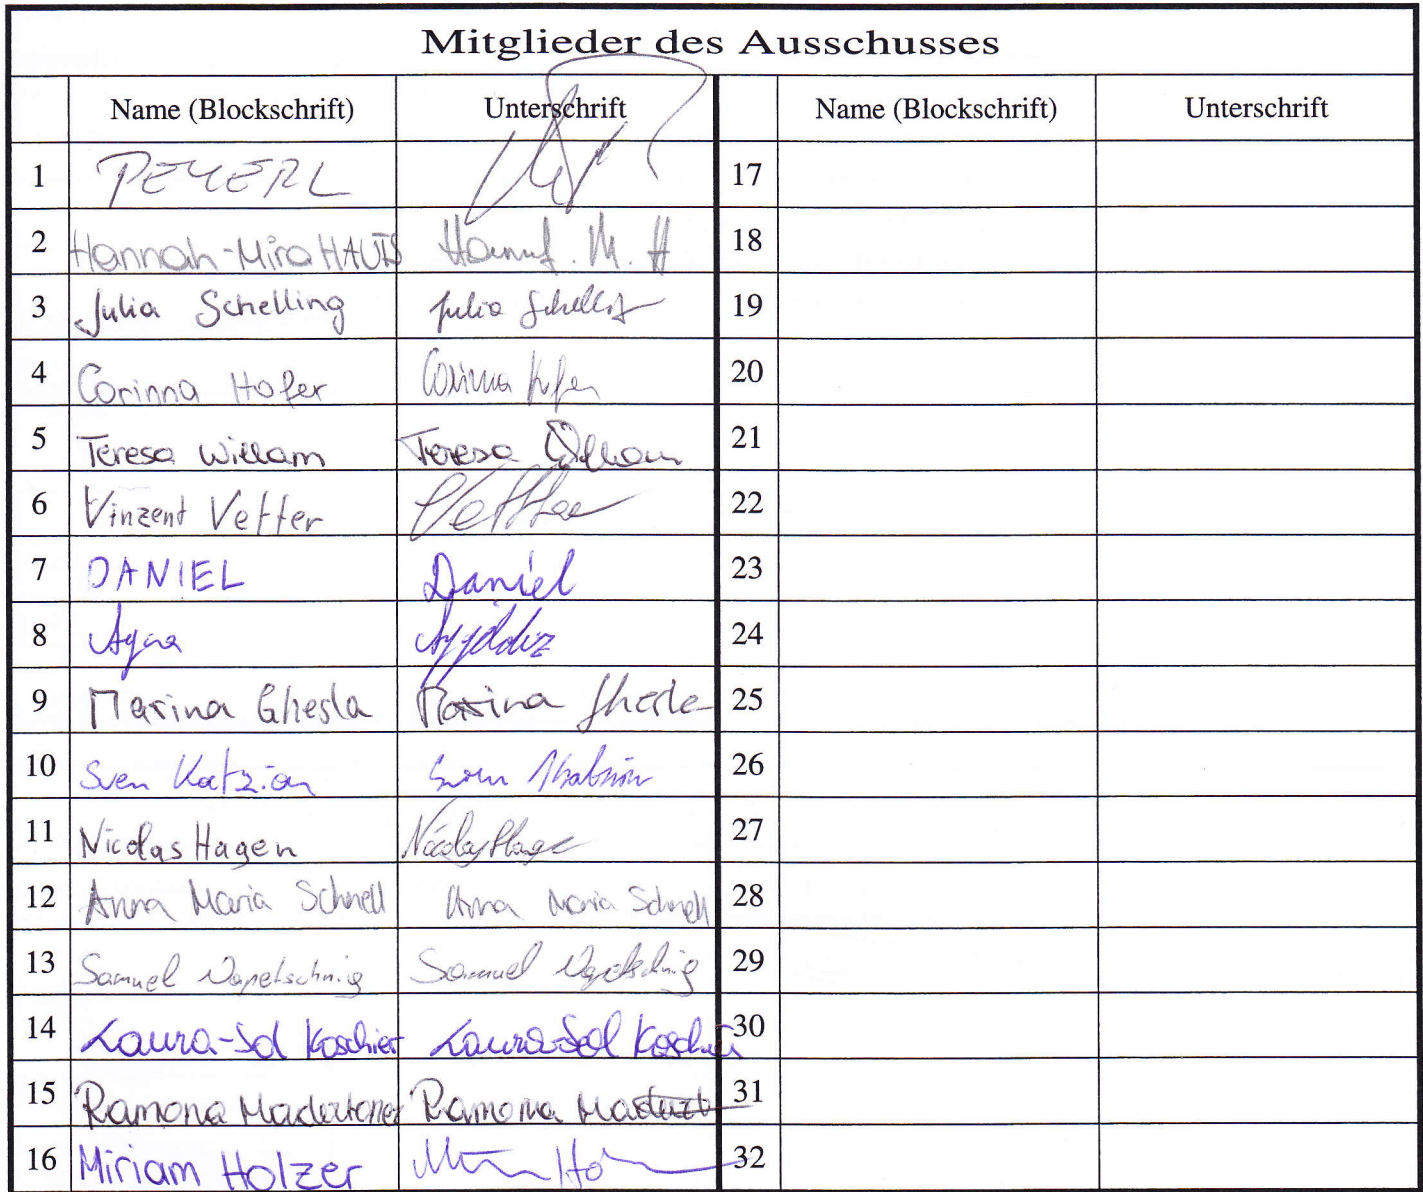 Mitglieder des Ausschusses
Name (Blockschrift) Unterschrift Name (Blockschrift) Unterschrift
1 PEYERL 17
2 Hannah-Mira 18
3 Julia Schelling Julia 19
4 Corinna Hofer Corinna 20
5 Teresa Willam Teresa Willam 21
6 Vinzent Vetter Vetter 22
7 DANIEL Daniel 23
8 24
9 Marina Ghesla Marina 25
10 Sven Katzian Sven 26
11 Nicolas Hagen Nicolas 27
12 Anna Maria Schnell Anna Maria Schnell 28
13 Samuel Napetschnig Samuel Napetschnig 29
14 Laura-Sol Koschier Laura-Sol 30
15 Ramona Madertoner Ramona 31
16 Miriam Holzer 32